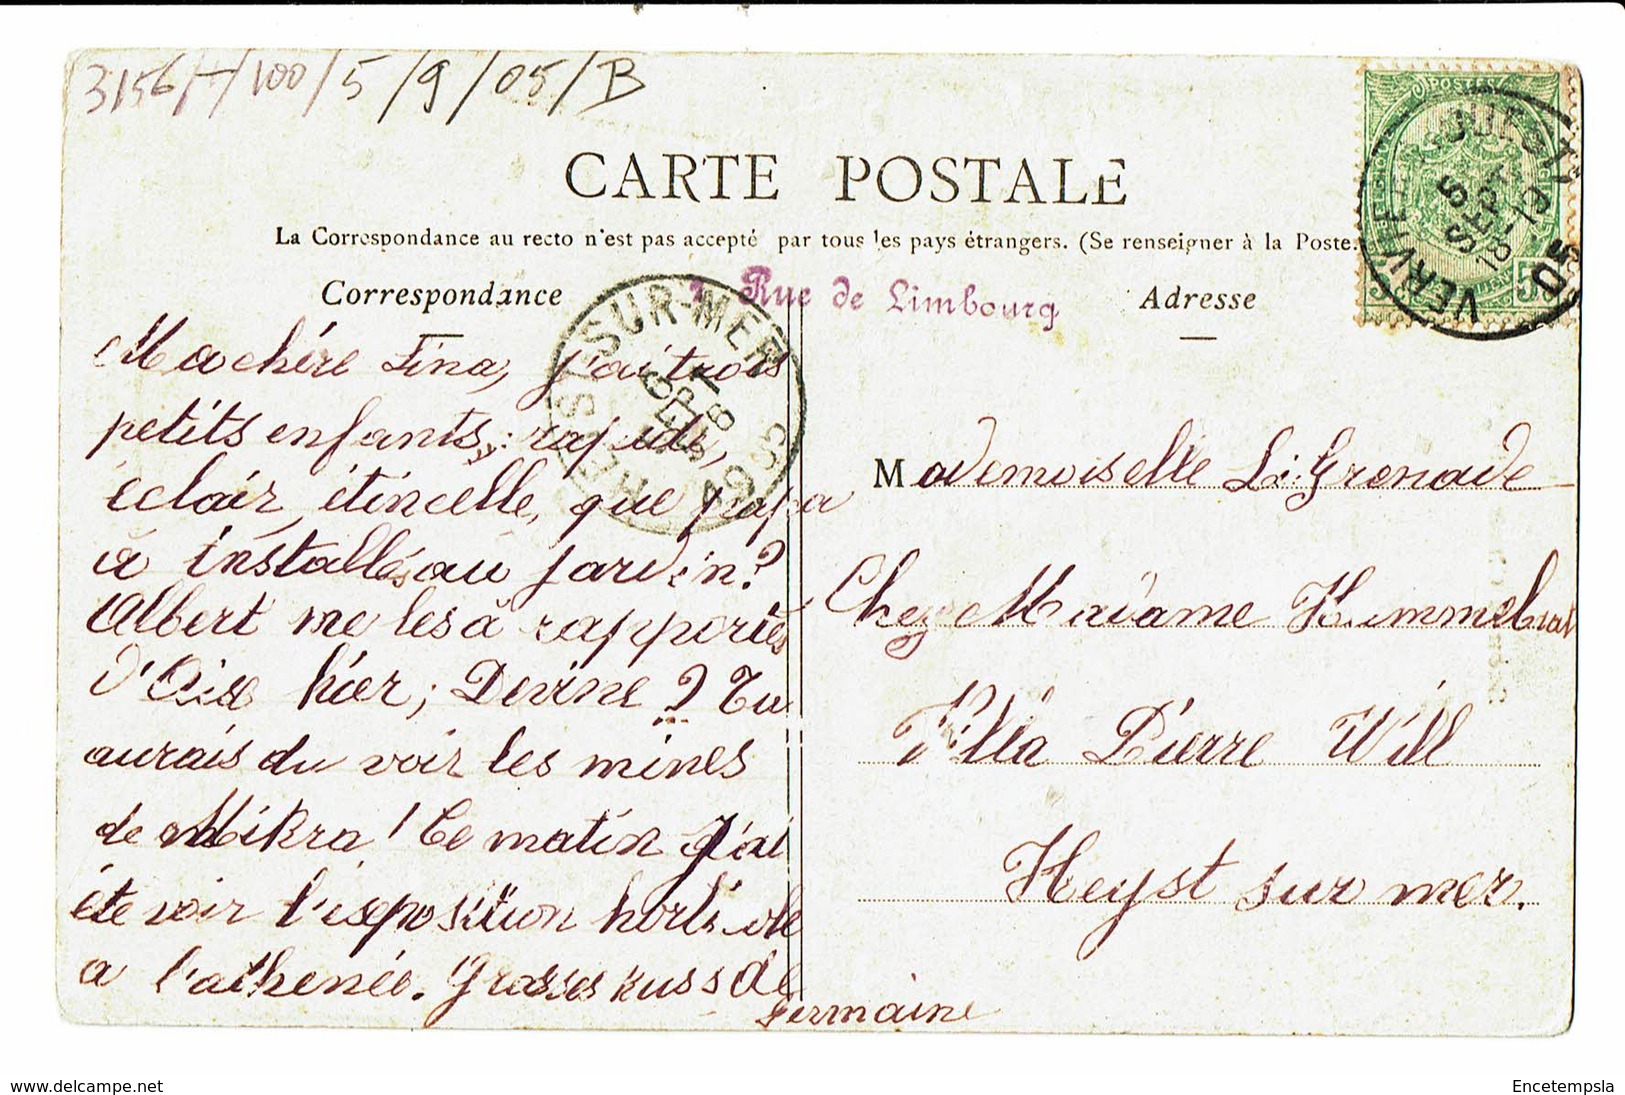 3156/+/100/5/9/05/B
CARTE POSTALE
La Correspondance au recto n'est pas accepté par tous les pays étrangers. (Se renseigner à la Poste.
Correspondance
Rue de Limbourg
Adresse
Ma chére Fina, j'ai trois
petits enfants; rapide,
éclair, étincelle, que papa
a installés au jardin?
Albert me les à rapportés
d'Oise hier; Devine? Tu
aurais du voir les mines
de Mikra! Ce matin j'ai
été voir l'isposition horticole
a l'athenée. Grosses kuss de
Germaine
Mademoiselle L. Grenade
Chez Madame Himmelrat
Villa Pierre Will
Heyst sur mer.
HEYST-SUR-MER
SEPT
VERVIERS
6
SEPT
05
POSTES
5
www.delcampe.net
Encetempsla